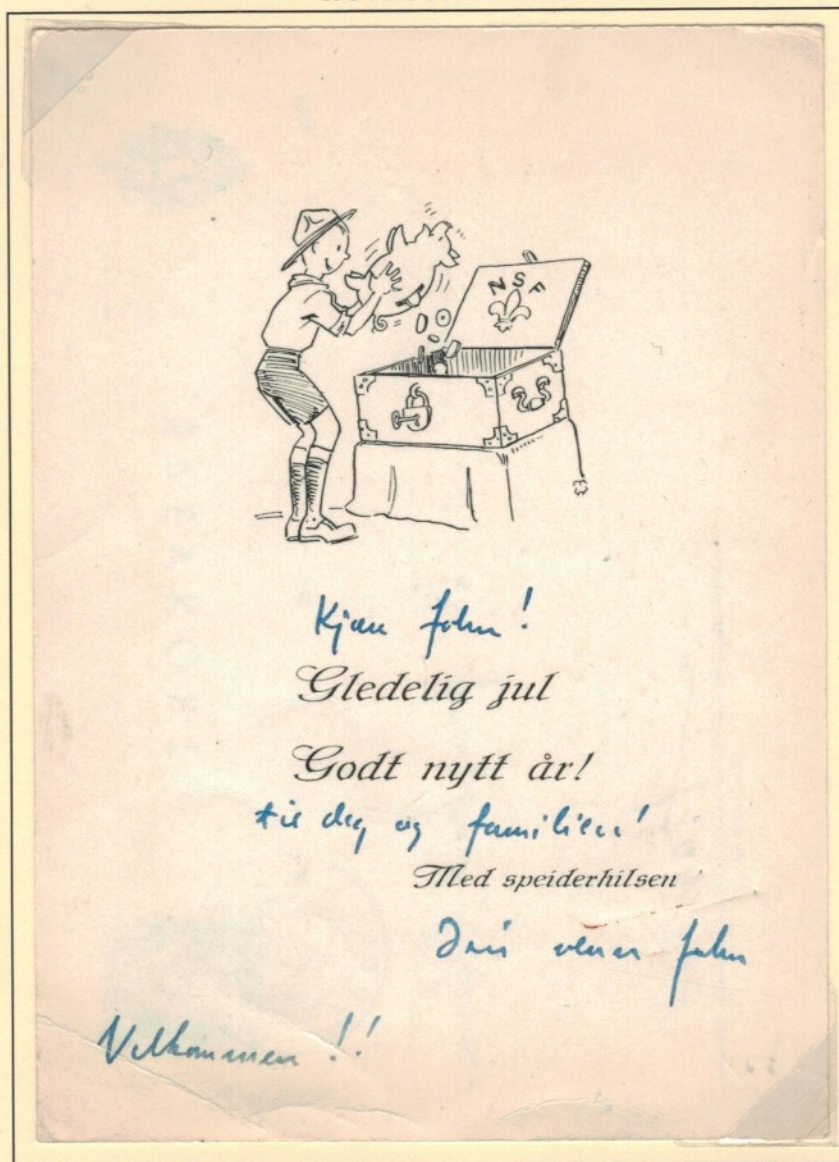 NSF
Kjære John!
Gledelig jul
Godt nytt år!
til deg og familien!
Med speiderhilsen
Din venn John
Velkommen!!